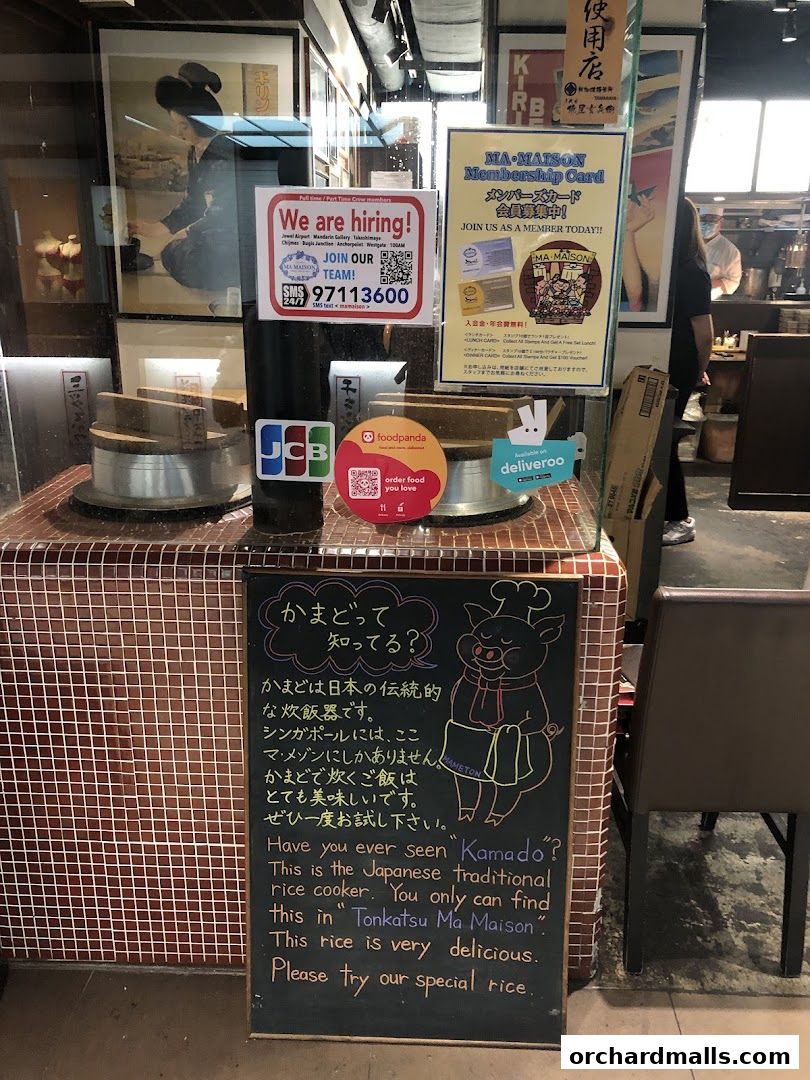 使用店
キリン
KIRI
BE
Full time / Part Time Crew members
We are hiring!
Jewel Airport · Mandarin Gallery · Takashimaya
Chijmes · Bugis Junction · Anchorpoint · Westgate · IOGAM
MA MAISON
JOIN OUR
TEAM!
SMS
24/7
97113600
SMS text < mamaison >
MA·MAISON
Membership Card
メンバーズカード
会員募集中!
JOIN US AS A MEMBER TODAY!!
MA·MAISON
入会金・年会費無料!
<LUNCH CARD> Collect All Stamps And Get A Free Set Lunch!
<DINNER CARD> Collect All Stamps And Get $100 Voucher!
JCB
foodpanda
order food
you love
Available on
deliveroo
かまどって
知ってる?
かまどは日本の伝統的
な炊飯器です。
シンガポールには、ここ
マ・メゾンにしかありません。
かまどで炊くご飯は
とても美味しいです。
ぜひ一度お試し下さい。
MAMETON
Have you ever seen "Kamado"?
This is the Japanese traditional
rice cooker. You only can find
this in "Tonkatsu Ma Maison".
This rice is very delicious.
Please try our special rice.
orchardmalls.com